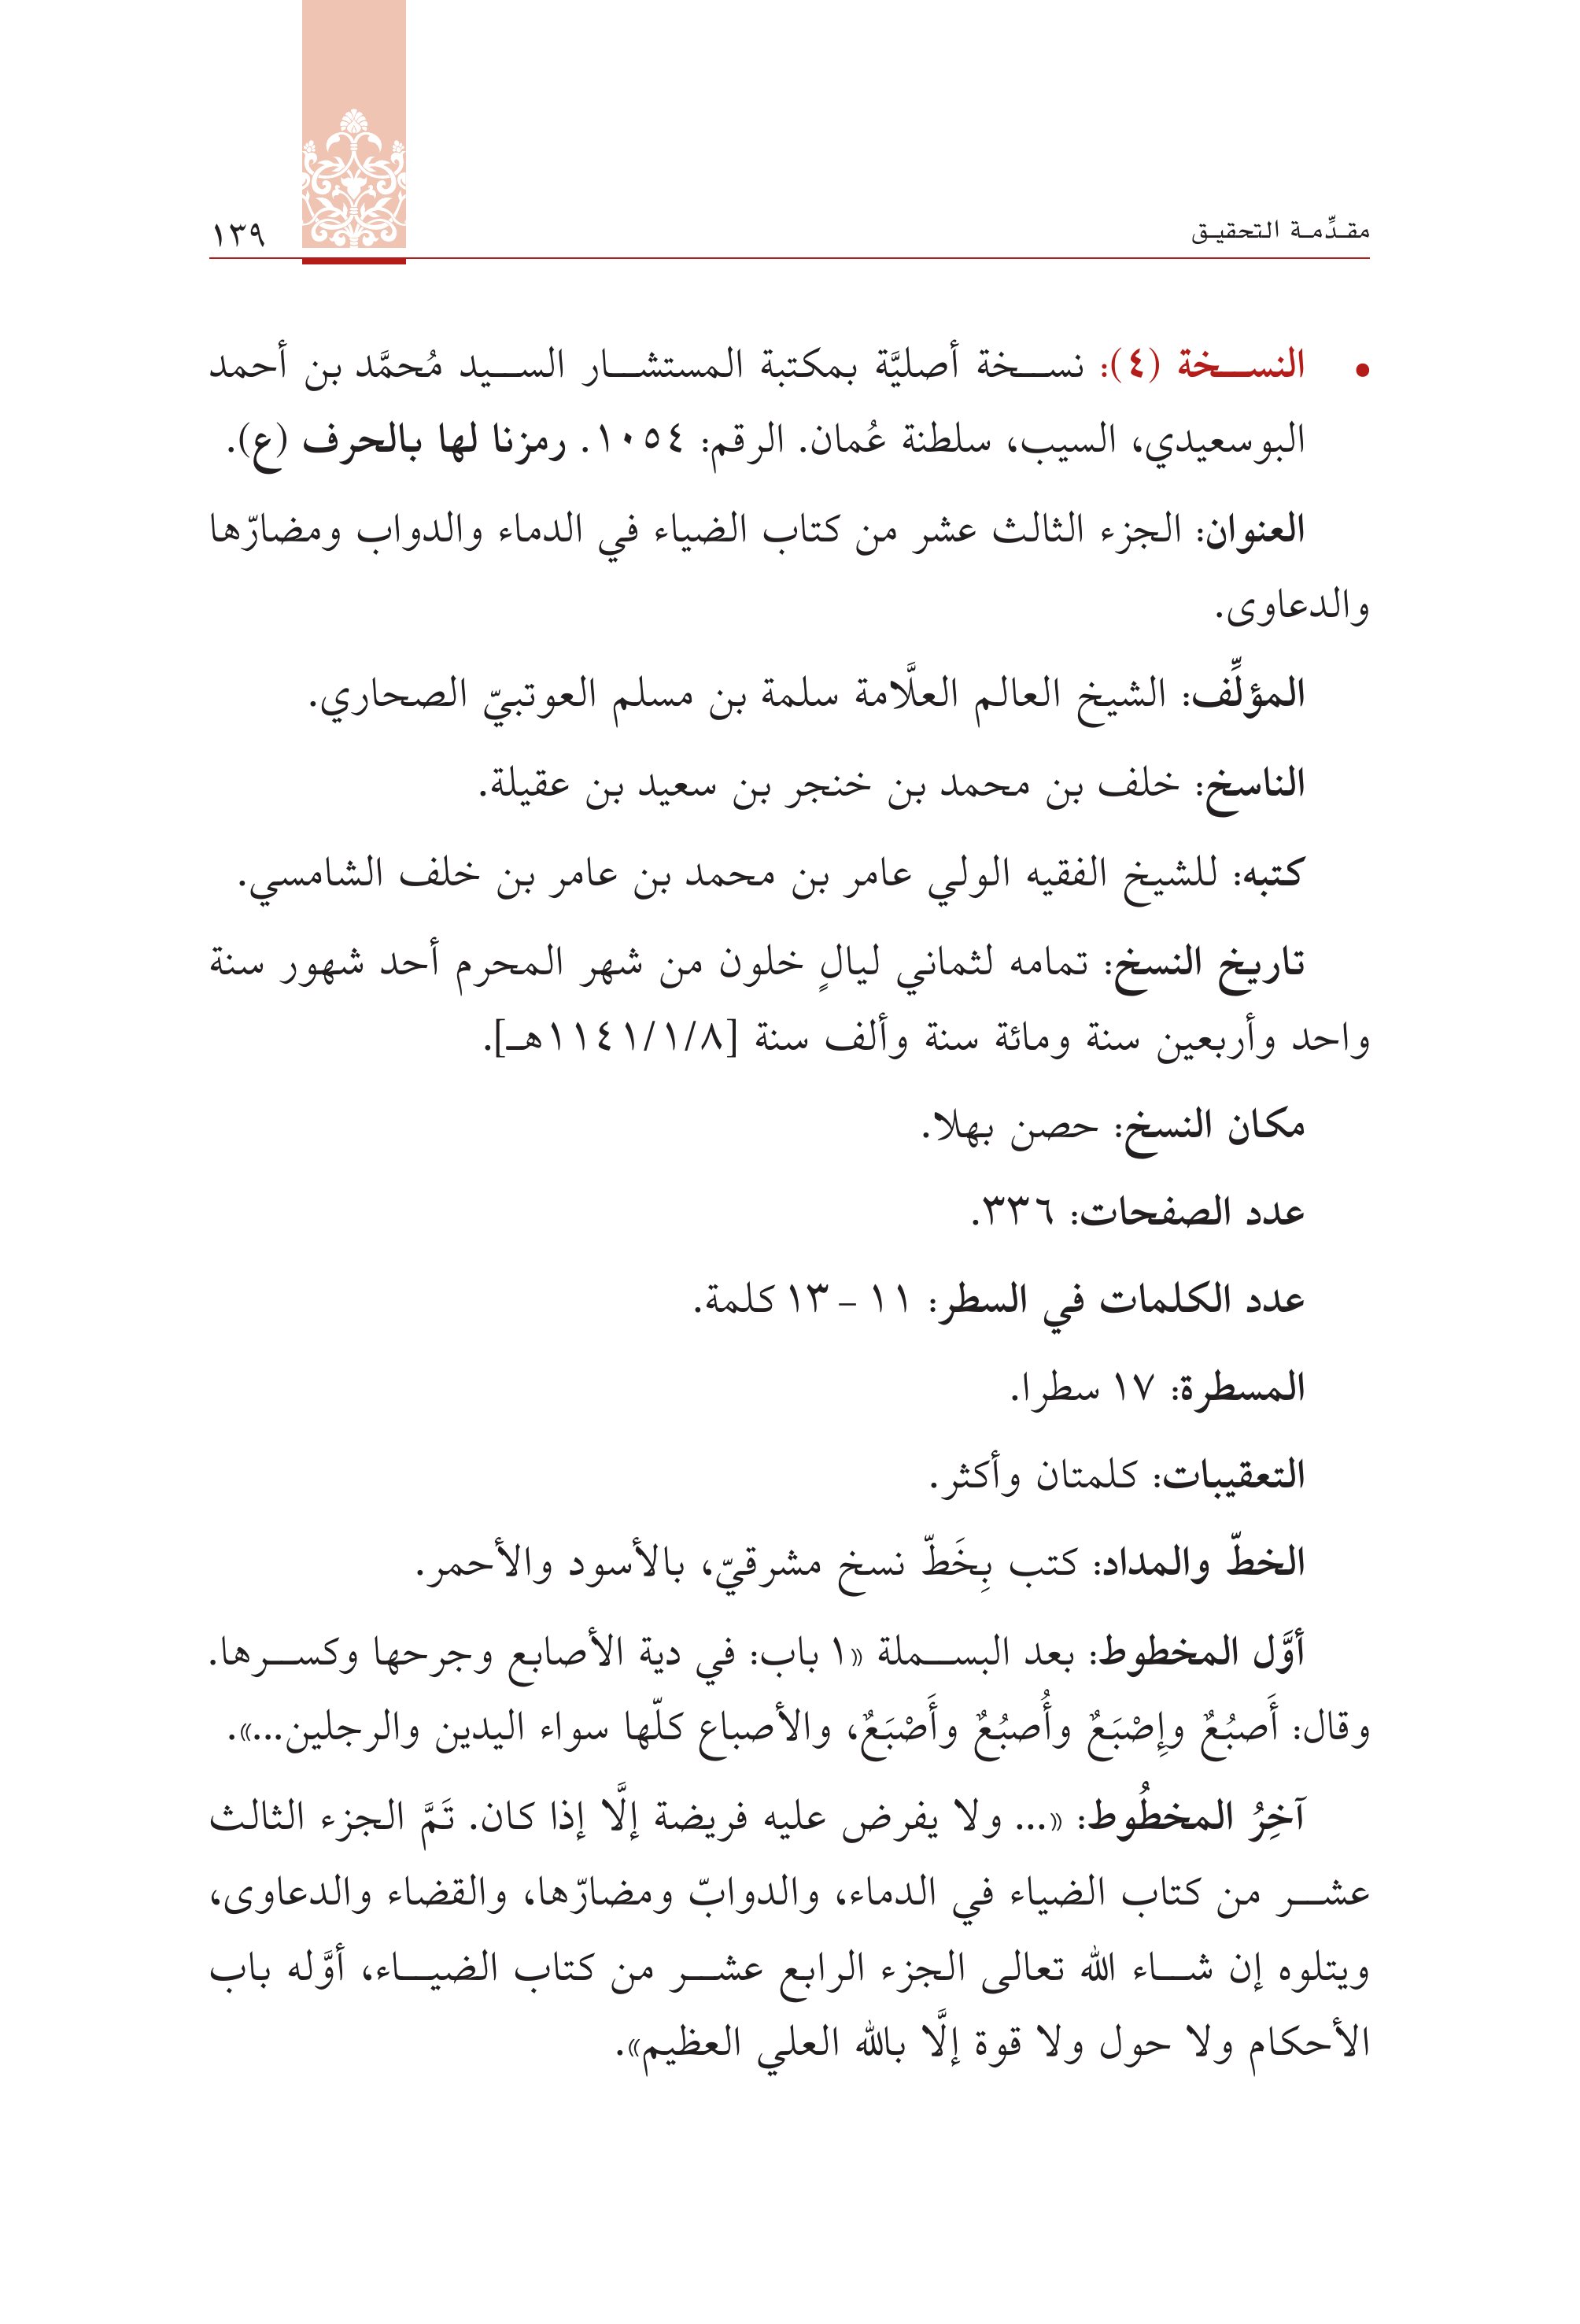 مقدِّمة التحقيق
١٣٩
• النسخة (٤): نسخة أصليَّة بمكتبة المستشار السيد مُحمَّد بن أحمد
البوسعيدي، السيب، سلطنة عُمان. الرقم: ١٠٥٤. رمزنا لها بالحرف (ع).
العنوان: الجزء الثالث عشر من كتاب الضياء في الدماء والدواب ومضارّها
والدعاوى.
المؤلِّف: الشيخ العالم العلَّامة سلمة بن مسلم العوتبيّ الصحاري.
الناسخ: خلف بن محمد بن خنجر بن سعيد بن عقيلة.
كتبه: للشيخ الفقيه الولي عامر بن محمد بن عامر بن خلف الشامسي.
تاريخ النسخ: تمامه لثماني ليالٍ خلون من شهر المحرم أحد شهور سنة
واحد وأربعين سنة ومائة سنة وألف سنة [١١٤١/١/٨هـ].
مكان النسخ: حصن بهلا.
عدد الصفحات: ٣٣٦.
عدد الكلمات في السطر: ١١ - ١٣ كلمة.
المسطرة: ١٧ سطرا.
التعقيبات: كلمتان وأكثر.
الخطّ والمداد: كتب بِخَطّ نسخ مشرقيّ، بالأسود والأحمر.
أوَّل المخطوط: بعد البسملة «١ باب: في دية الأصابع وجرحها وكسرها.
وقال: أَصبُعٌ وإِصْبَعٌ وأُصبُعٌ وأَصْبَعٌ، والأصباع كلّها سواء اليدين والرجلين...».
آخِرُ المخطُوط: «... ولا يفرض عليه فريضة إلَّا إذا كان. تَمَّ الجزء الثالث
عشر من كتاب الضياء في الدماء، والدوابّ ومضارّها، والقضاء والدعاوى،
ويتلوه إن شاء الله تعالى الجزء الرابع عشر من كتاب الضياء، أوَّله باب
الأحكام ولا حول ولا قوة إلَّا بالله العلي العظيم».